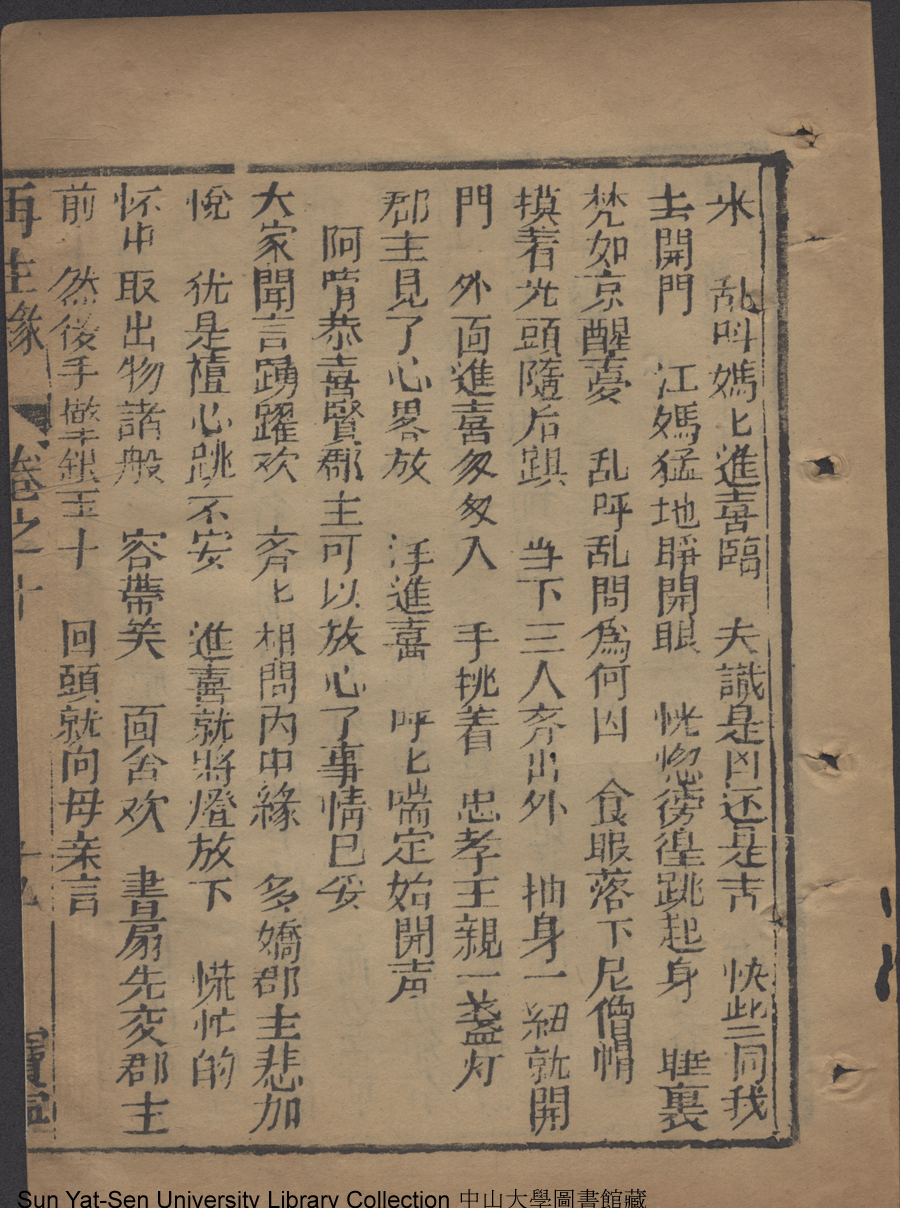 米　乱呌媽〻進喜臨　夫識是凶还是吉　快些同我
去開門　江媽猛地睜開眼　恍惚徬徨跳起身　睡裏
梵如京醒夢　乱呼乱問爲何因　食眼落下尼僧帽
摸着光頭隨后跟　当下三人齐出外　抽身一紐就開
門　外面進喜匆匆入　手挑着　忠孝王親一盞灯
郡主見了心畧放　江進喜　呼〻喘定始開声
阿唷恭喜賢郡主可以放心了事情已妥
大家聞言踴躍欢　齐〻相問內中緣　多嬌郡主悲加
悅　犹是檀心跳不安　進喜就將燈放下　慌忙的
怀中取出物諸般　容帶笑　面含欢　書扇先交郡主
前　然後手挐銀五十　回頭就向母亲言
再生緣　卷之十　十九
Sun Yat-Sen University Library Collection 中山大學圖書館藏